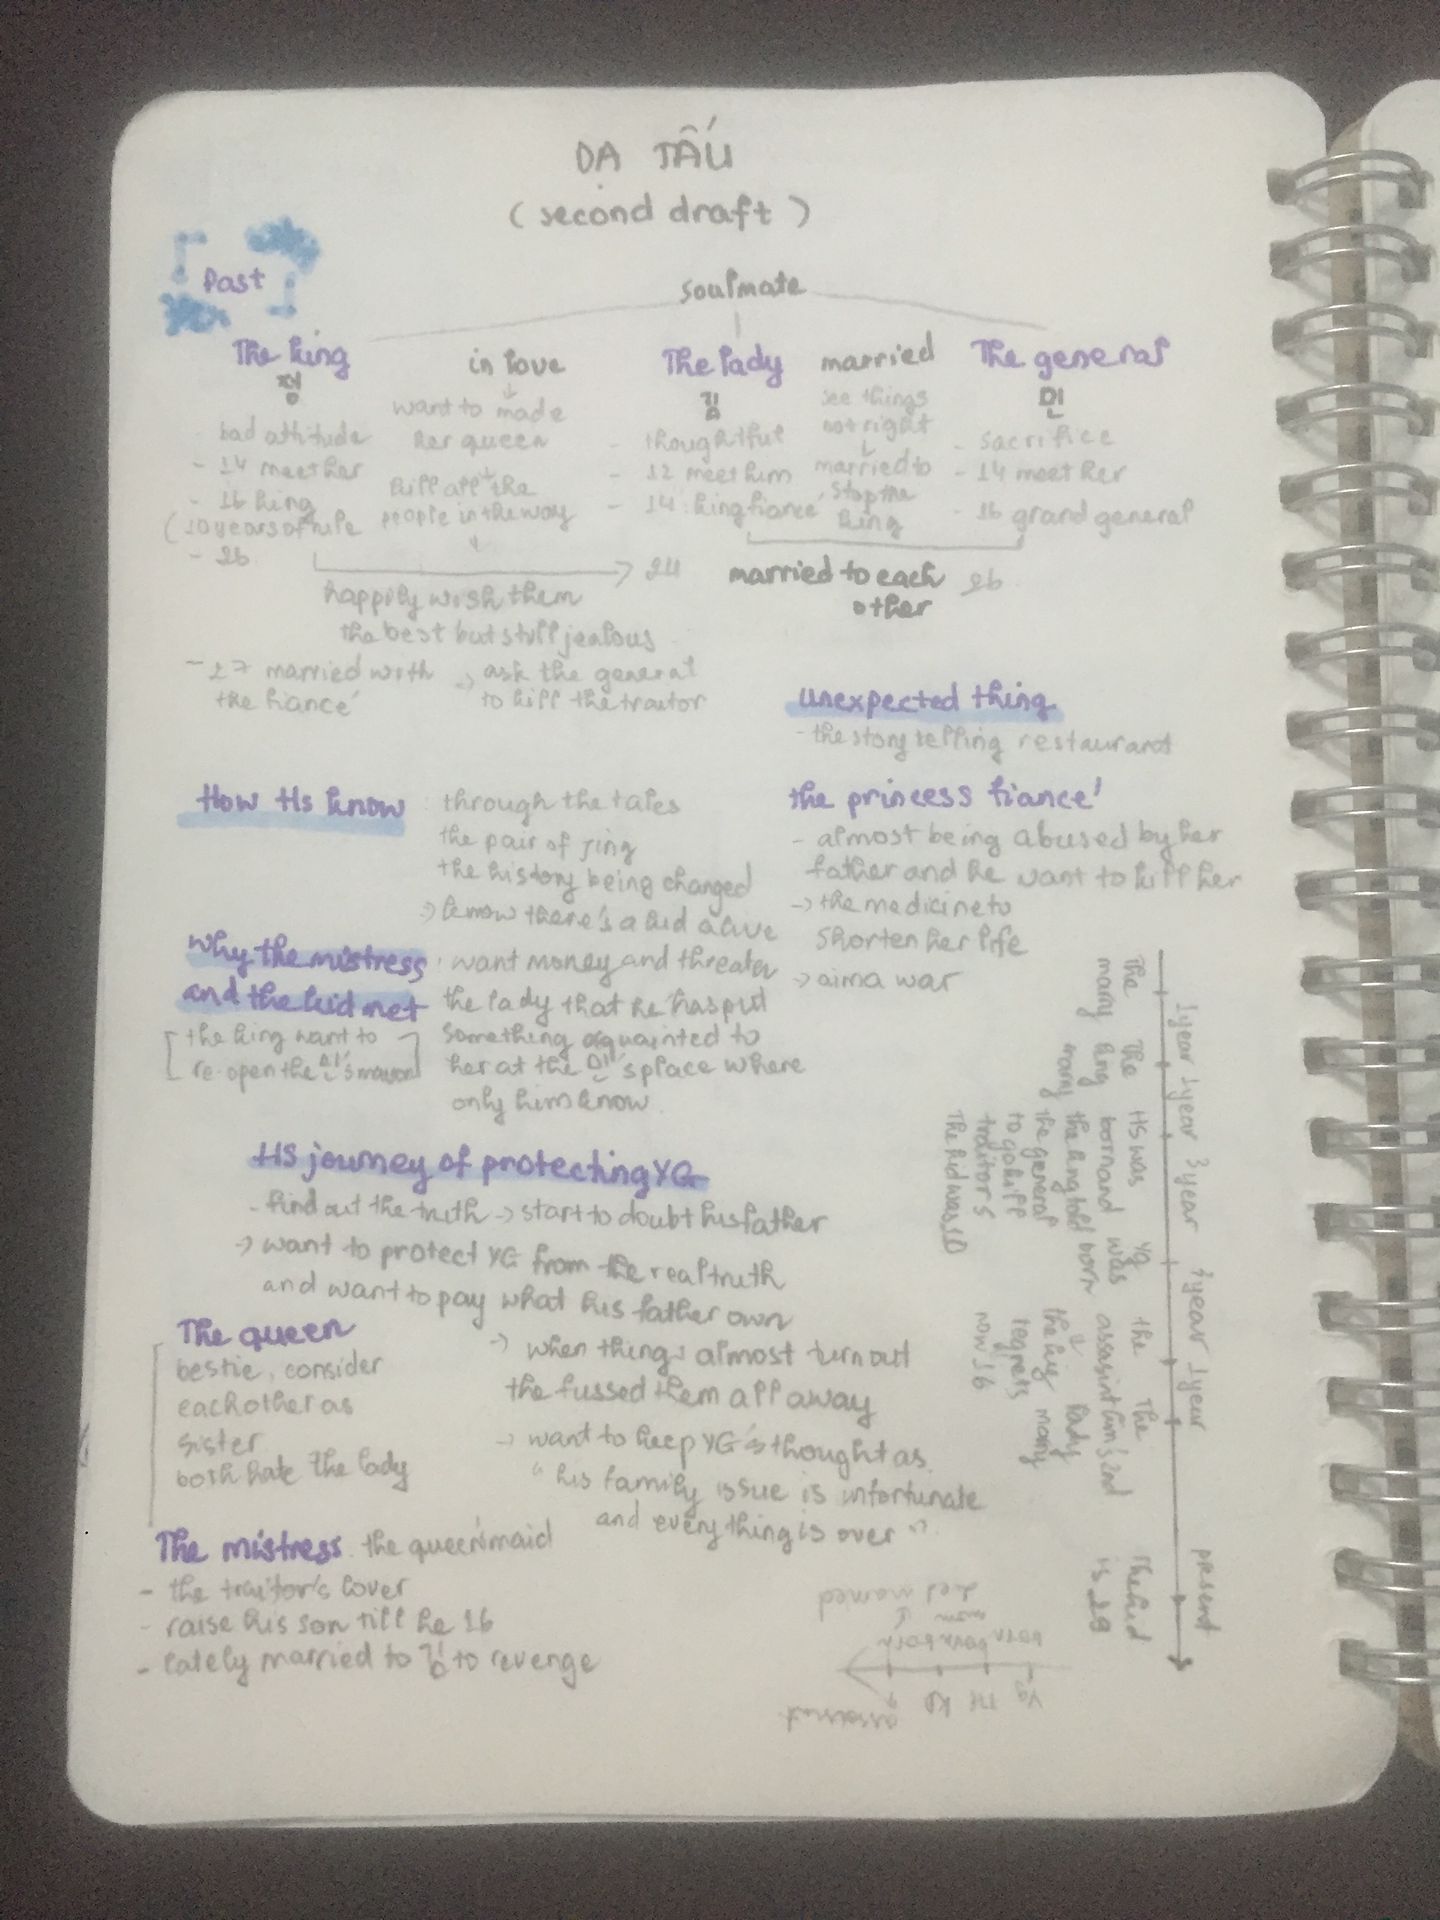 DẠ TẤU
( second draft )
Past
soulmate
The king
정
- bad attitude
- 14 meet her
- 16 king
( 10 years of rule
- 26
in love
want to made
her queen
kill all the
people in the way
The lady
김
- thoughtful
- 12 meet him
- 14 king fiancé
24
married
see things
not right
married to
stop the
king
The general
민
- sacrifice
- 14 meet her
- 16 grand general
26
married to each
other
happily wish them
the best but still jealous
- 27 married with
the fiancé
→ ask the general
to kill the traitor
unexpected thing
- the story telling restaurant
How Hs know : through the tales
the pair of ring
the history being changed
→ know there's a kid alive
the princess fiancé
- almost being abused by her
father and he want to kill her
→ the medicine to
shorten her life
→ aim a war
Why the mistress
and the kid met
: want money and threaten
the lady that he has put
something aquainted to
her at the 민's place where
only him know
[ the king want to
re-open the 민's ]
HS journey of protecting YG
- find out the truth → start to doubt his father
→ want to protect YG from the real truth
and want to pay what his father own
→ when things almost turn out
the fussed them all away
→ want to keep YG's thought as
" his family issue is unfortunate
and everything is over "
The queen
bestie, consider
each other as
sister
both hate the lady
The mistress : the queen' maid
- the traitor's lover
- raise his son till he 16
- lately married to 김 to revenge
1 year
1 year
3 year
3 year
1 year
present
The
marry
The
king
marry
HS was
born and
the king told
the general
to go kill
traitors
The kid was 10
YG
was
born
the
assasint
now 16
The
lady
marry
The kid
is 29
YG
TH
born
born
born